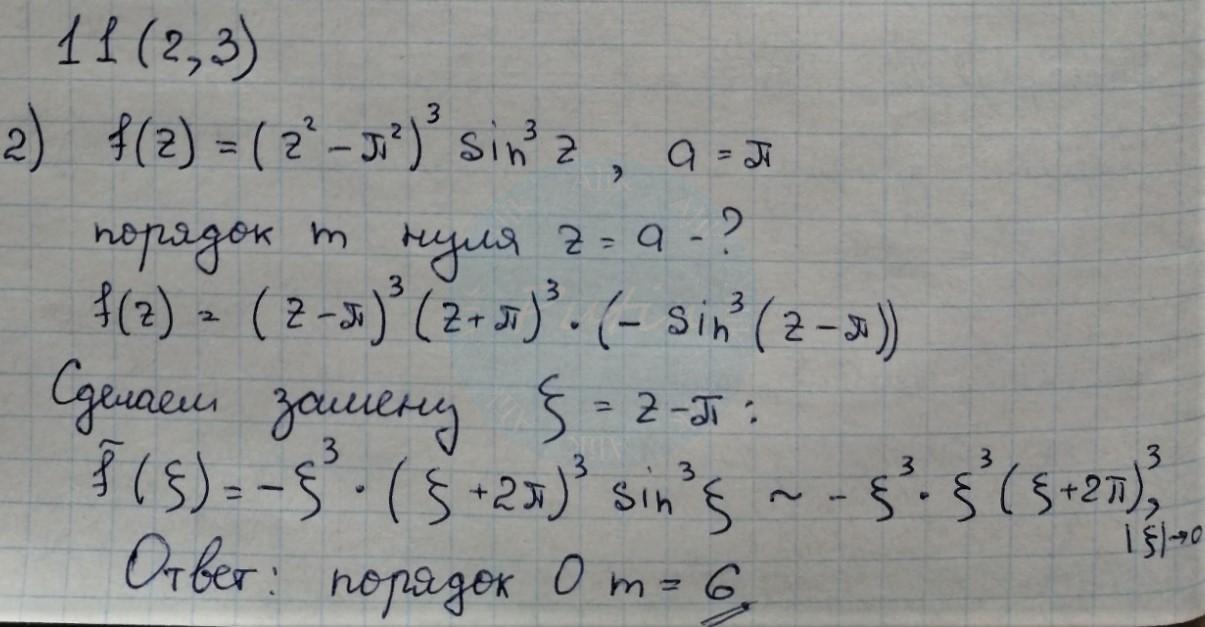 11(2,3)
2) f(z) = (z² - π²)³ sin³ z , a = π
порядок m нуля z = a - ?
f(z) = (z-π)³ (z+π)³ · (- sin³ (z-π))
Сделаем замену ξ = z-π :
f̃(ξ) = -ξ³ · (ξ+2π)³ sin³ ξ ~ - ξ³ · ξ³ (ξ+2π)³, |ξ|→0
Ответ: порядок 0 m = 6.